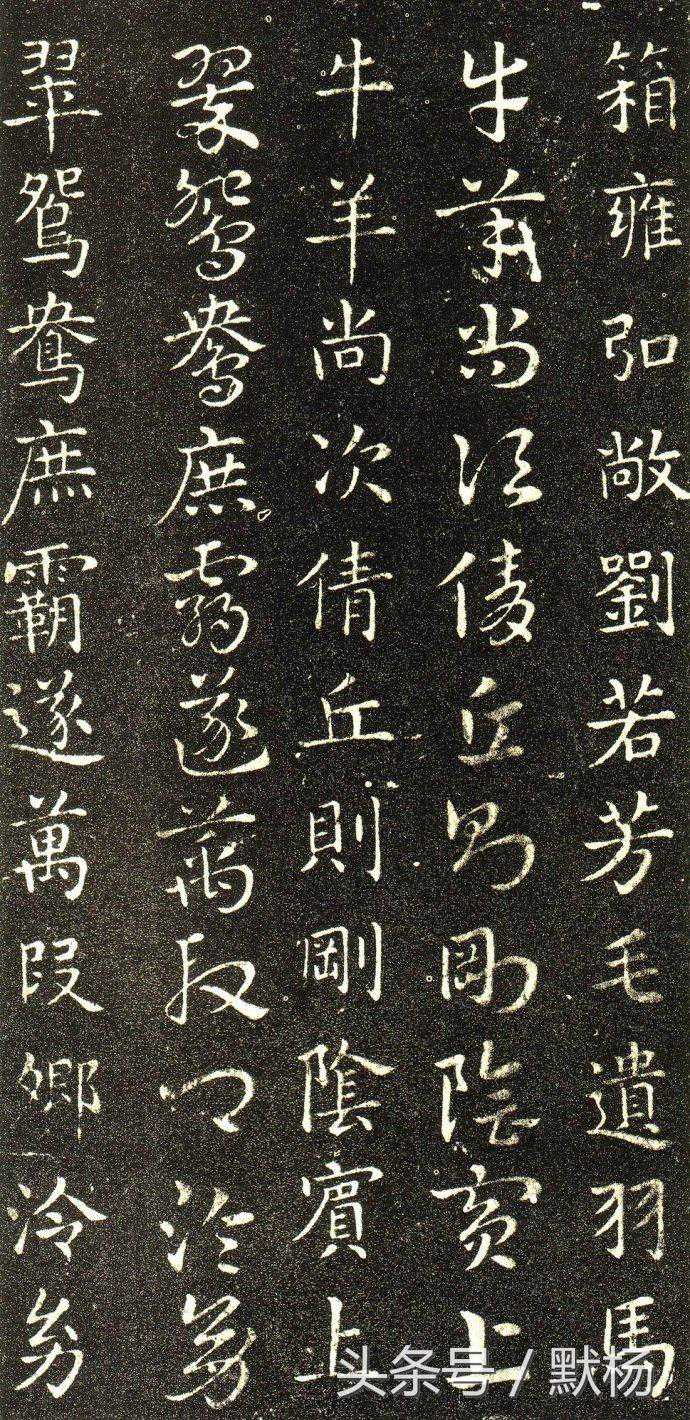 箱雍弘敞劉若芳毛遺羽馬
牛羊尚次倩丘則剛陰賓上
牛羊尚次倩丘則剛陰賓上
翠鴛鴦庶霸遂萬段卿泠幼
翠鴛鴦庶霸遂萬段卿冷幼
头条号 / 默杨